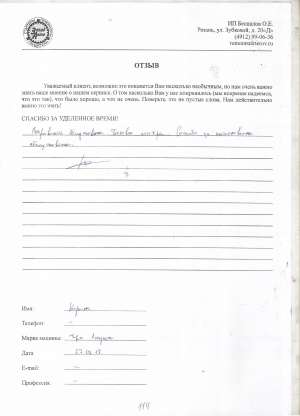 ИП Беспалов О.Е.
Рязань, ул. Зубковой, 20«Д»
(4912) 99-06-36
remontstiserov.ru
ОТЗЫВ
Уважаемый клиент, возможно это покажется Вам несколько необычным, но нам очень важно
знать ваше мнение о нашем сервисе. О том насколько Вам у нас понравилось (мы искренне надеемся,
что это так), что было хорошо, а что не очень. Поверьте, это не пустые слова. Нам действительно
важно это знать!
СПАСИБО ЗА УДЕЛЕННОЕ ВРЕМЯ!
Понравилось обслуживание
Спасибо за качественное
обслуживание.
Имя:
Телефон: –
Марка машины:
Дата
E-mail: –
Профессия: –